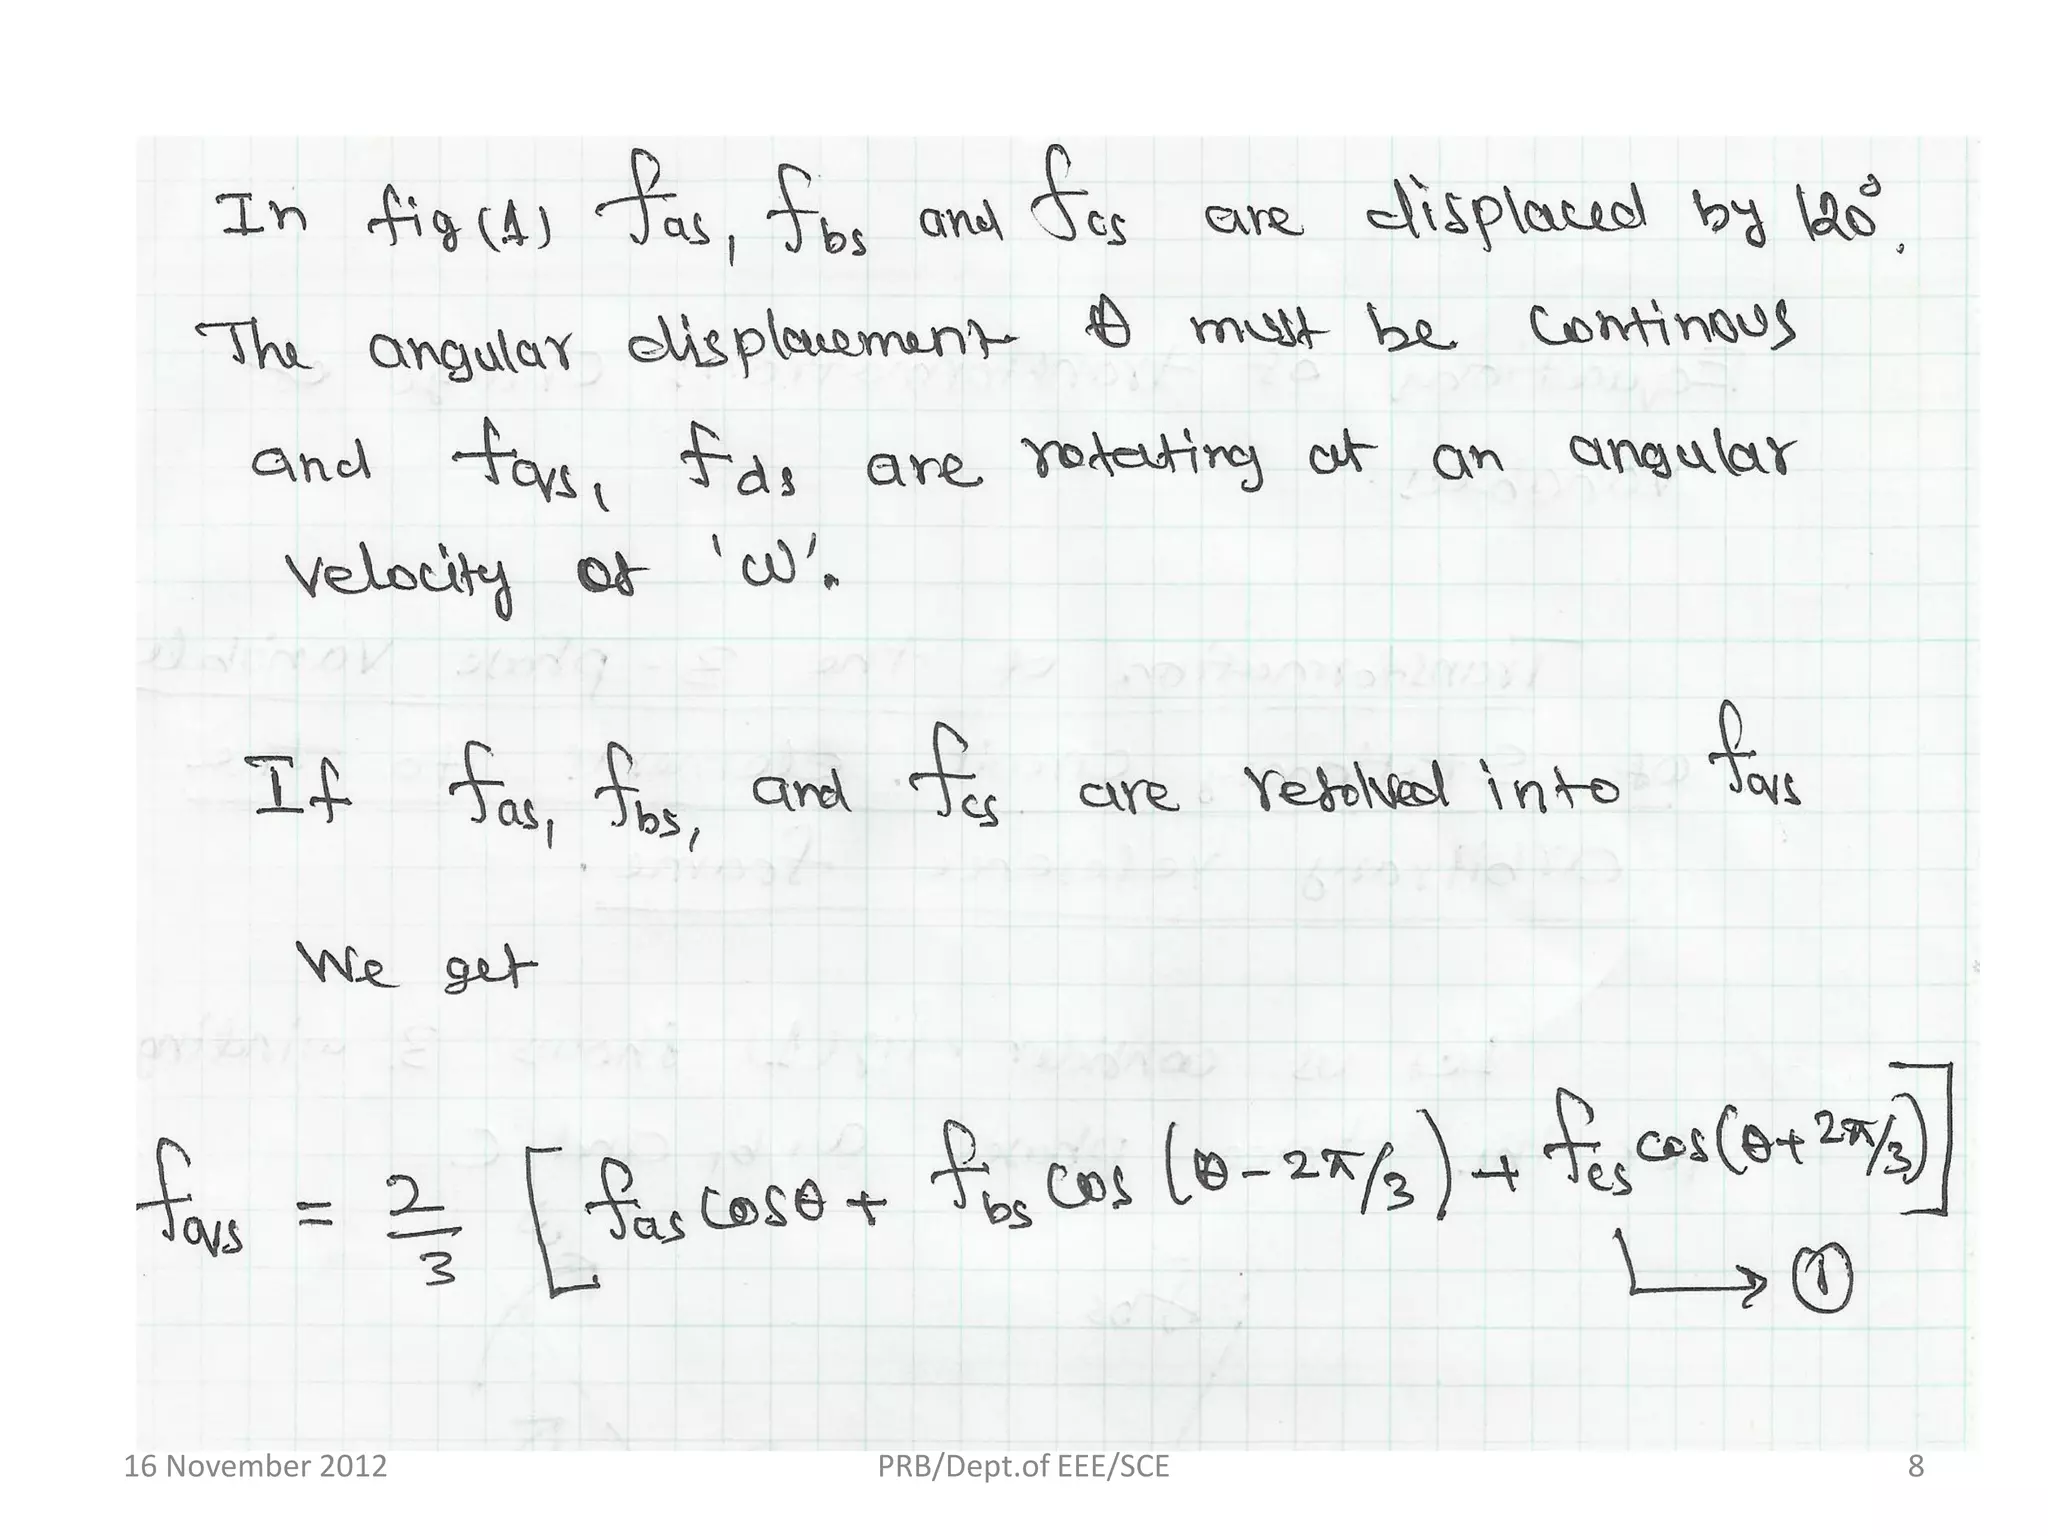 In fig (1) fas, fbs and fcs are displaced by 120°.
The angular displacement θ must be continous
and fqs, fds are rotating at an angular
velocity of 'ω'.
If fas, fbs, and fcs are resolved into fqs
We get
fqs = 2/3 [fas cosθ + fbs cos (θ - 2π/3) + fcs cos(θ + 2π/3)]
→ ①
16 November 2012 PRB/Dept.of EEE/SCE 8